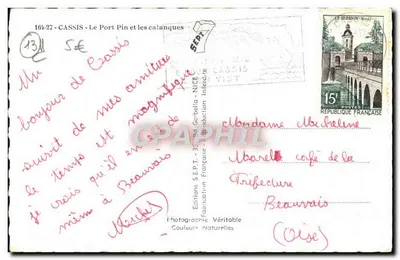 164-27 - CASSIS - Le Port Pin et les calanques
13
5€
Un
bonjour de Cassis
suivit de mes amitiés
le temps est magnifique
je crois qu'il en est de
mêm à Beauvais
SEPT
CASSIS
Editions S.E.P.T. - NICE
Fabrication Française - Reproduction Interdite
Photographie Véritable
Couleurs Naturelles
LE QUESNOY
15F
REPUBLIQUE FRANÇAISE
Madame Micheline
Morel café de la
Préfecture
Beauvais
(Oise)